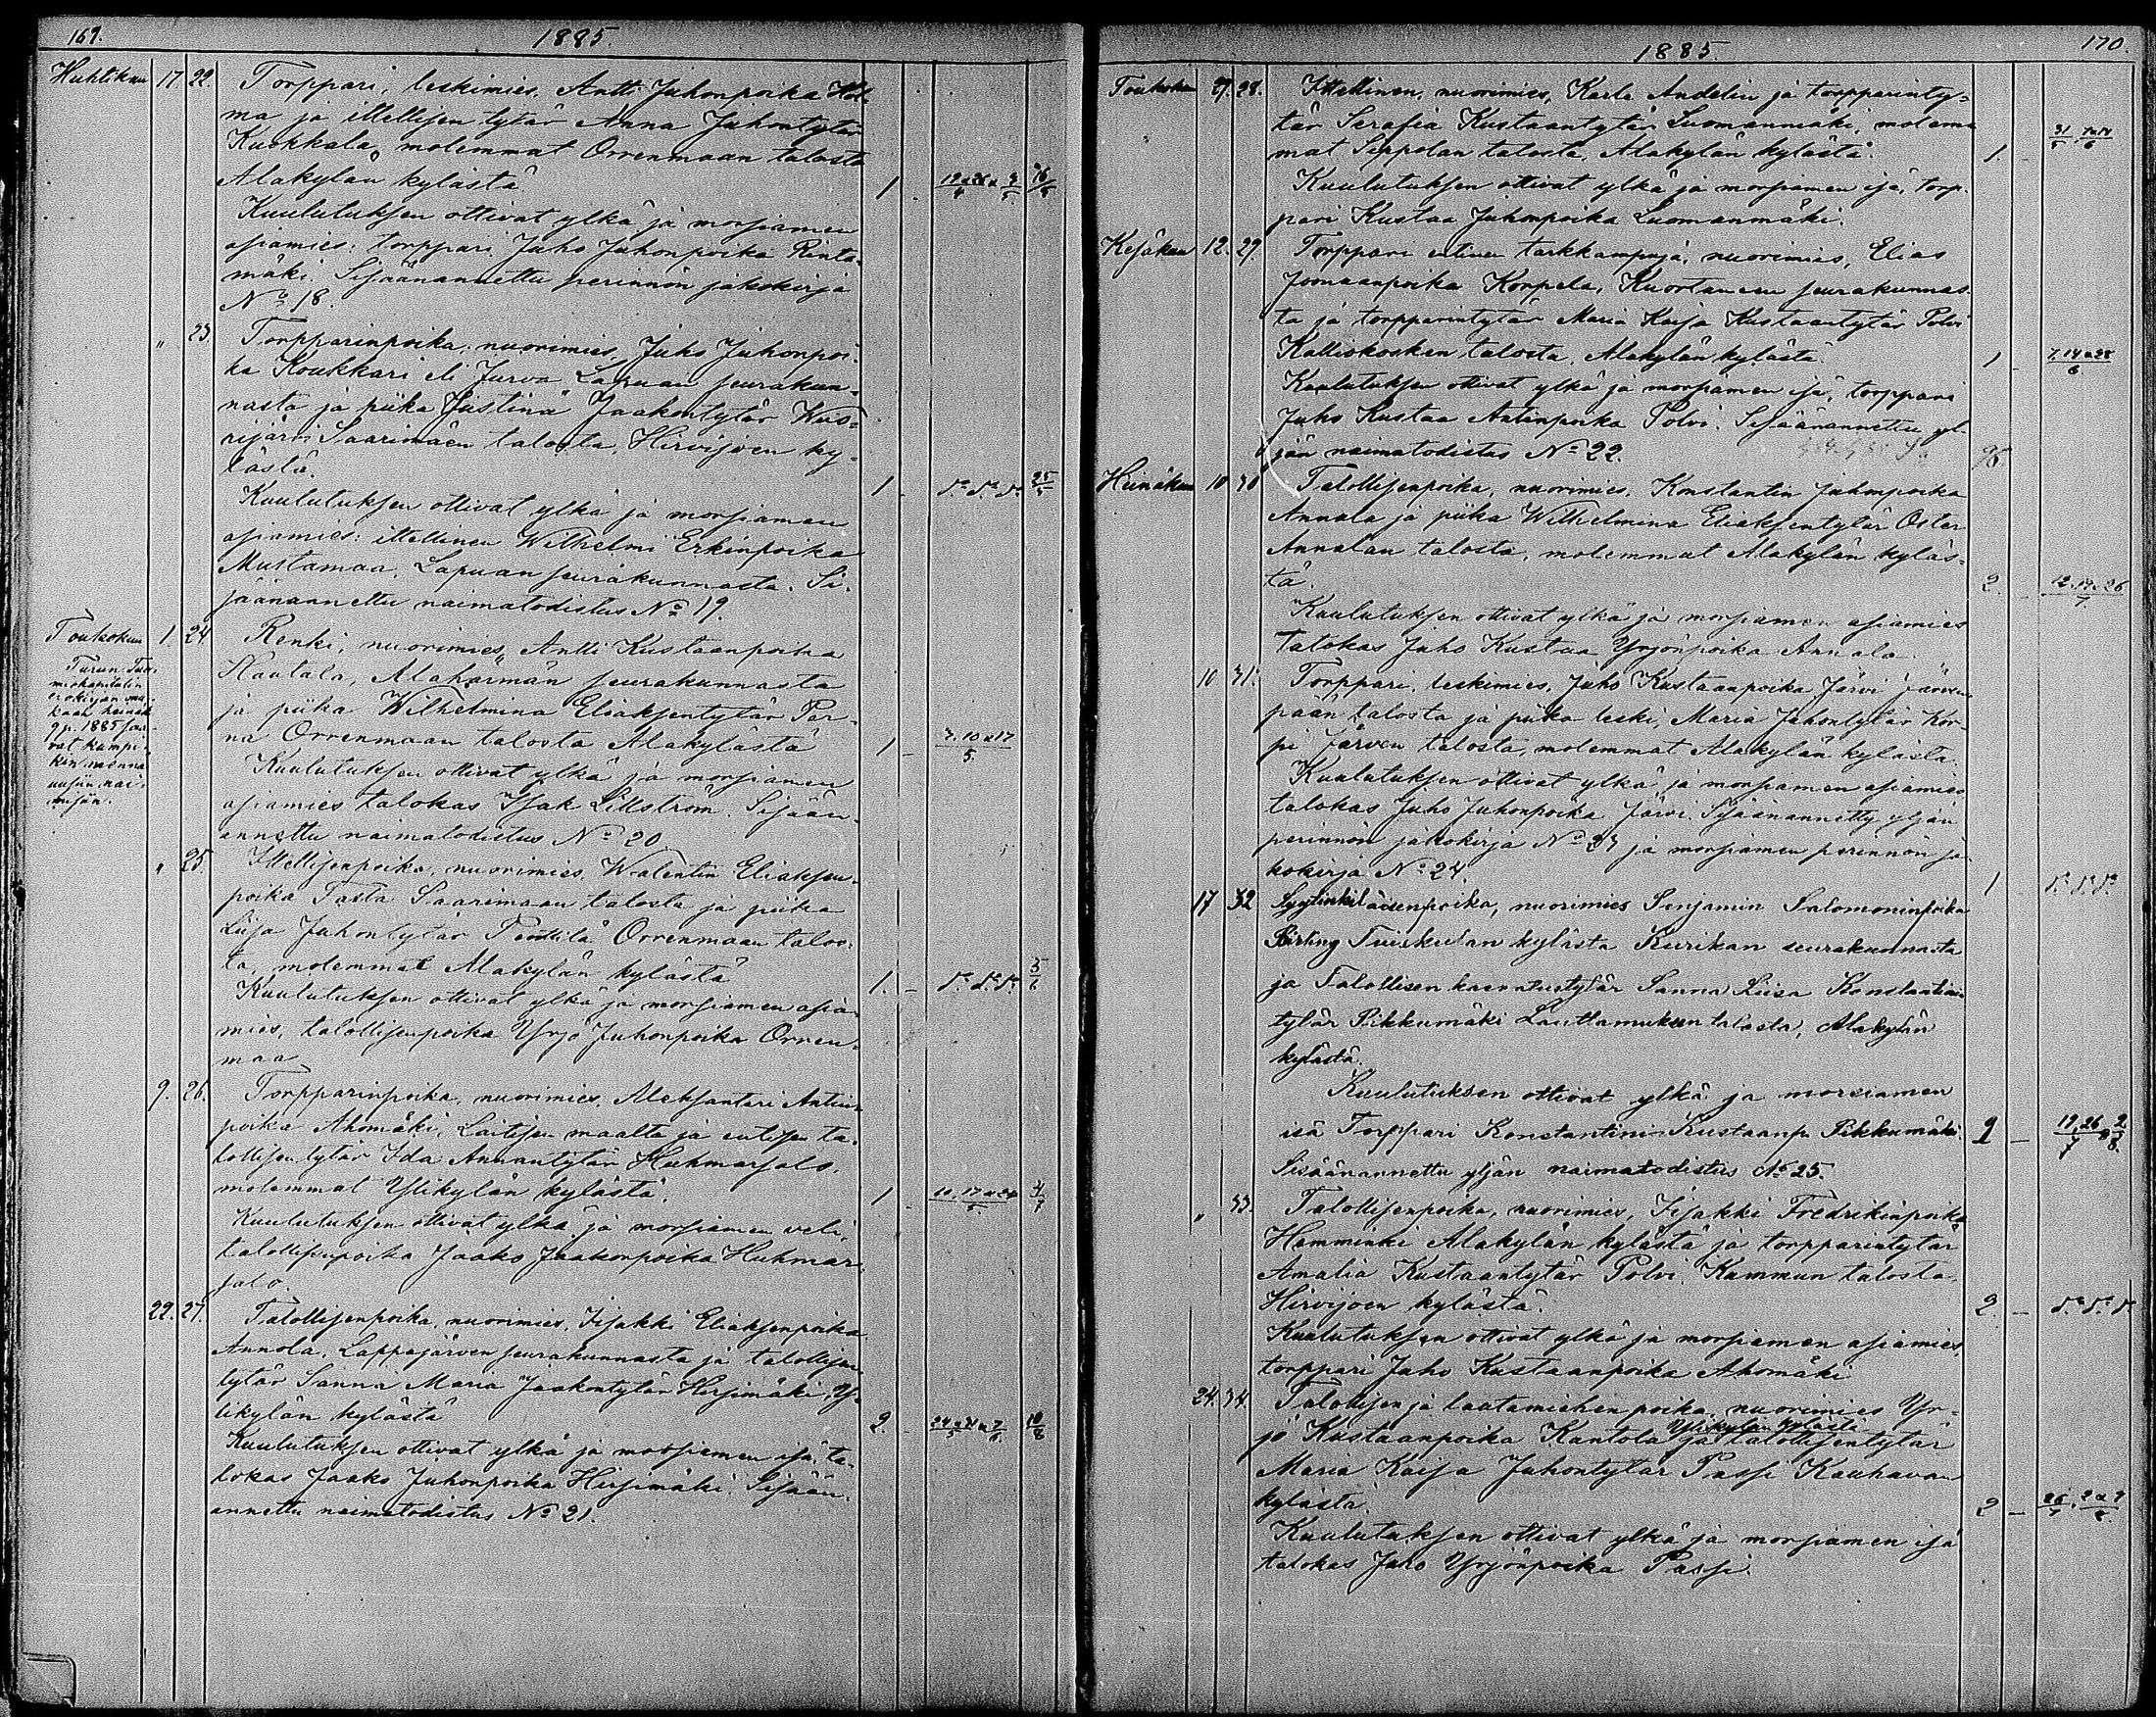 169.
1885.
Huhtikuu 17. 22. Torppari, leskimies, Antti Juhonpoika Hol-
ma ja itellisen tytär Anna Juhontytär
Kuokkala, molemmat Orrenmaan talosta
Alakylän kylästä 1
Kuulutuksen ottivat ylkä ja morsiamen
asiamies: torppari Juho Juhonpoika Rinta-
mäki. Sisäänannettu perinnön jakokirja
No 18.
" 23. Torpparinpoika, nuorimies, Juho Juhonpoi-
ka Koukkari eli Jurva Lapuan seurakun-
nasta ja piika Justina Jaakontytär
Saarimaen talosta, Hirvijoen ky-
lästä. 1 - 25/5
Kuulutuksen ottivat ylkä ja morsiamen
asiamies: itellinen Wilhelmi Erkinpoika
Mustamaa, Lapuan seurakunnasta. Si-
säänannettu naimatodistus No 19.
Toukokuu 1. 24. Renki, nuorimies, Antti Kustaanpoika
Hautala, Alahärmän seurakunnasta
ja piika Wilhelmina Eliaksentytär Per-
na Orrenmaan talosta Alakylästä 1 - 3. 10 a 17/5.
Kuulutuksen ottivat ylkä ja morsiamen
asiamies talokas Isak Lillström. Sisään-
annettu naimatodistus No 20
Turun Tuo-
miokapitulin
erokirjan mu-
kaan
9 p. 1885 saa-
vat kumpi-
kin mennä
uusiin nai-
misiin.
" 25. Itellisenpoika, nuorimies, Walentin Eliaksen-
poika Tasta Saarimaan talosta ja piika
Liisa Juhontytär Penttilä Orrenmaan talos-
ta, molemmat Alakylän kylästä 1. - 5/6
Kuulutuksen ottivat ylkä ja morsiamen asia-
mies, talollisenpoika Yrjö Juhonpoika Orren-
maa
9. 26. Torpparinpoika, nuorimies, Aleksanteri Antin-
poika Ahomäki, Laitisen maalta ja entisen ta-
lollisen tytär Ida Annantytär Huhmarsalo,
molemmat Ylikylän kylästä. 1 - 10. 17 a 24/5
Kuulutuksen ottivat ylkä ja morsiamen veli,
talollisenpoika Jaako Jaakonpoika Huhmar-
salo.
22. 27. Talollisenpoika, nuorimies, Iisakki Eliaksenpoika
Annola, Lappajärven seurakunnasta ja talollisen
tytär Sanna Maria Jaakontytär Hirsimäki, Y-
likylän kylästä 2. - 24 a 31/5 a 7/6
Kuulutuksen ottivat ylkä ja morsiamen isä, ta-
lokas Jaako Juhonpoika Hirsimäki. Sisään-
annettu naimatodistus No 21.
170.
1885.
Toukokuu 29. 28. Itellinen, nuorimies, Karle Andelin ja torpparinty-
tär Serafia Kustaantytär Luomanmäki, molem-
mat Seppolan talosta, Alakylän kylästä. 1. - 31/5, 7 a 14/6
Kuulutuksen ottivat ylkä ja morsiamen isä, torp-
pari Kustaa Juhonpoika Luomanmäki.
Kesäkuu 12. 29. Torppari entinen tarkkampuja, nuorimies, Elias
Joonaanpoika Korpela, Kuortaneen seurakunnas-
ta ja torpparintytär Maria Kaisa Kustaantytär Polvi
Kalliokosken talosta, Alakylän kylästä. 1 - 7. 14 a 28/6
Kuulutuksen ottivat ylkä ja morsiamen isä, torppari
Juho Kustaa Antinpoika Polvi. Sisäänannettu yl-
jän naimatodistus No 22.
Heinäkuu 10 30 Talollisenpoika, nuorimies, Konstantin Juhonpoika
Annala ja piika Wilhelmina Eliaksentytär Öster
Annalan talosta, molemmat Alakylän kyläs-
tä. 2. - 12. 19 a 26/7.
Kuulutuksen ottivat ylkä ja morsiamen asiamies
talokas Juho Kustaa Yrjönpoika Annala.
10 31. Torppari, leskimies, Juho Kustaanpoika Järvi Järven-
pään talosta ja piika leski, Maria Juhontytär Kor-
pi Järven talosta, molemmat Alakylän kylästä.
Kuulutuksen ottivat ylkä ja morsiamen asiamies
talokas Juho Juhonpoika Järvi. Sisäänannettu yljän
perinnön jakokirja No 23 ja morsiamen perinnön ja-
kokirja No 24. 1
17 32 Syytinkiläisenpoika, nuorimies Penjamin Salomoninpoika
Tuiskulan kylästä Kurikan seurakunnasta
ja Talollisen kasvatustytär Sanna Liisa Konstantinin
tytär Pikkumäki Lauttamuksen talosta, Alakylän
kylästä.
Kuulutuksen ottivat ylkä ja morsiamen
isä Torppari Konstantini Kustaanp. Pikkumäki 2 - 19, 26/7 a 2/8.
Sisäänannettu yljän naimatodistus No 25.
" 33. Talollisenpoika, nuorimies, Iisakki Fredrikinpoika
Hemminki Alakylän kylästä ja torpparintytär
Amalia Kustaantytär Polvi Kammun talosta,
Hirvijoen kylästä. 2. -
Kuulutuksen ottivat ylkä ja morsiamen asiamies,
torppari Juho Kustaanpoika Ahomäki
24. 34. Talollisen ja lautamiehen poika, nuorimies Yr-
jö Kustaanpoika Kantola Ylikylän kylästä ja talollisentytär
Maria Kaisa Juhontytär Passi Kauhavan
kylästä. 2 - 26/7, 2 a 9/8.
Kuulutuksen ottivat ylkä ja morsiamen isä
talokas Juho Yrjönpoika Passi.